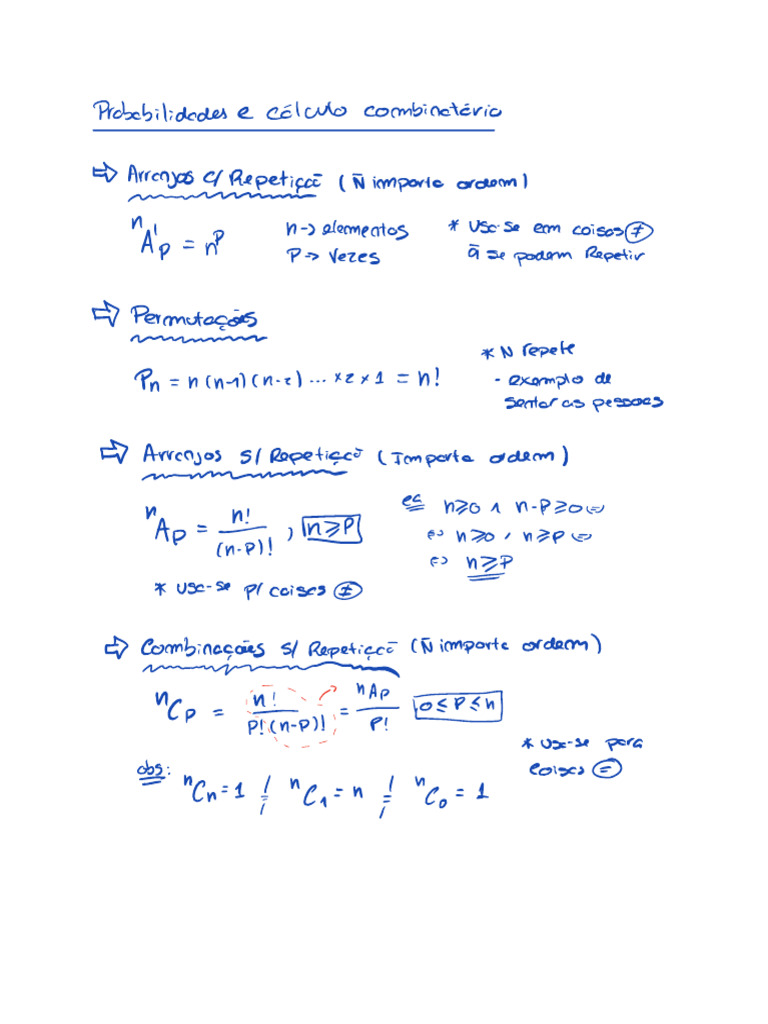 Probabilidades e cálculo combinatério
⇒ Arranjos c/ Repetiçaõ (Ñ importa ordem)
ⁿA'p = nᴾ
n → elementos
P → Vezes
* Usa-se em coisas ≠
q̃ se podem Repetir
⇒ Permutações
Pn = n(n-1)(n-2) ... × 2 × 1 = n!
* N repete
- exemplo de
sentar as pessoas
⇒ Arranjos s/ Repetiçaõ (Importa ordem)
ⁿAp = n! / (n-p)! , n ≥ P
n ≥ 0 ∧ n-P ≥ 0 ⇔
⇔ n ≥ 0 , n ≥ P ⇔
⇔ n ≥ P
* Usa-se p/ coisas ≠
⇒ Combinações s/ Repetiçaõ (Ñ importa ordem)
ⁿCp = n! / P!(n-P)! = ⁿAp / P! 0 ≤ P ≤ n
* Usa-se para
coisas =
obs: ⁿCn = 1 // ⁿC₁ = n // ⁿC₀ = 1